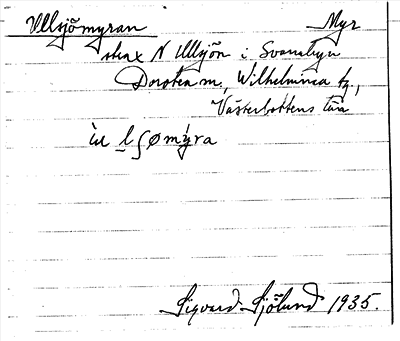 Ullsjömyran Myr
strax N Ullsjön i Svanabyn
Dorotea sn, Wilhelmina tg.,
Västerbottens län
ùl lʃømýra
Sigvard Sjölund 1935.